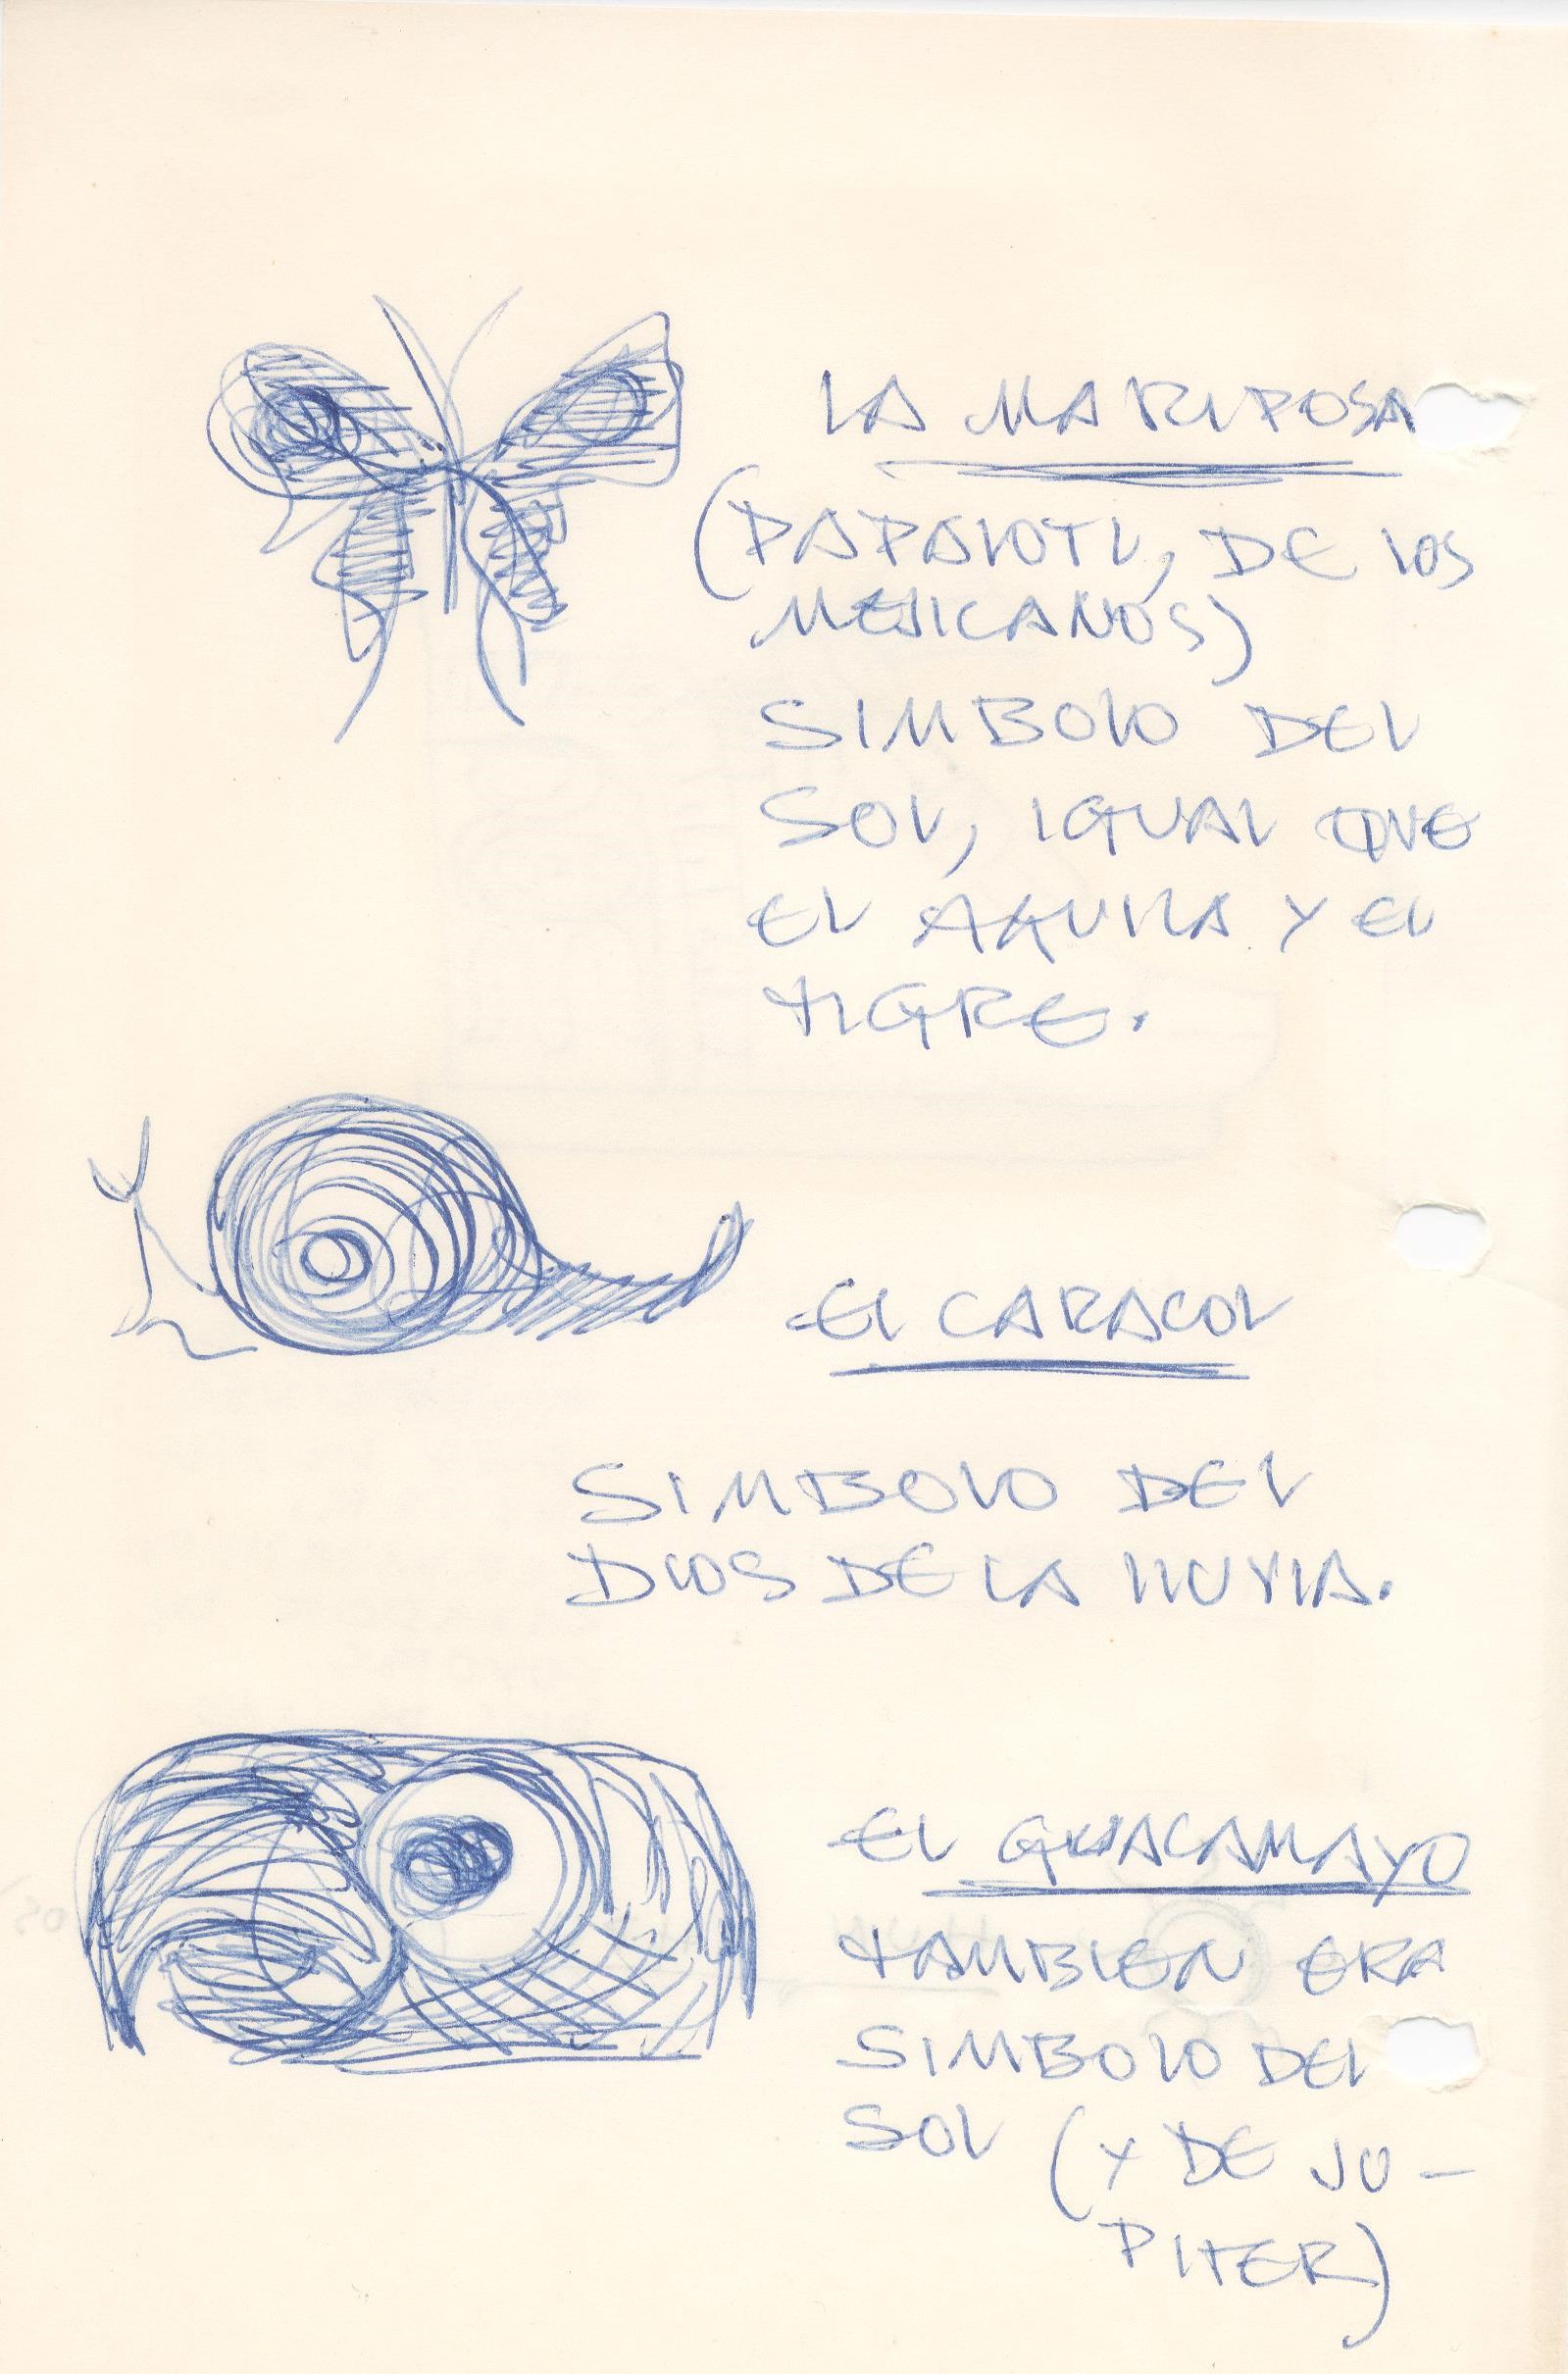 LA MARIPOSA
(PAPALOTL, DE LOS
MEJICANOS)
SIMBOLO DEL
SOL, IGUAL QUE
EL AGUILA Y EL
TIGRE.
EL CARACOL
SIMBOLO DEL
DIOS DE LA LLUVIA.
EL GUACAMAYO
TAMBIEN ERA
SIMBOLO DEL
SOL (Y DE JU-
PITER)